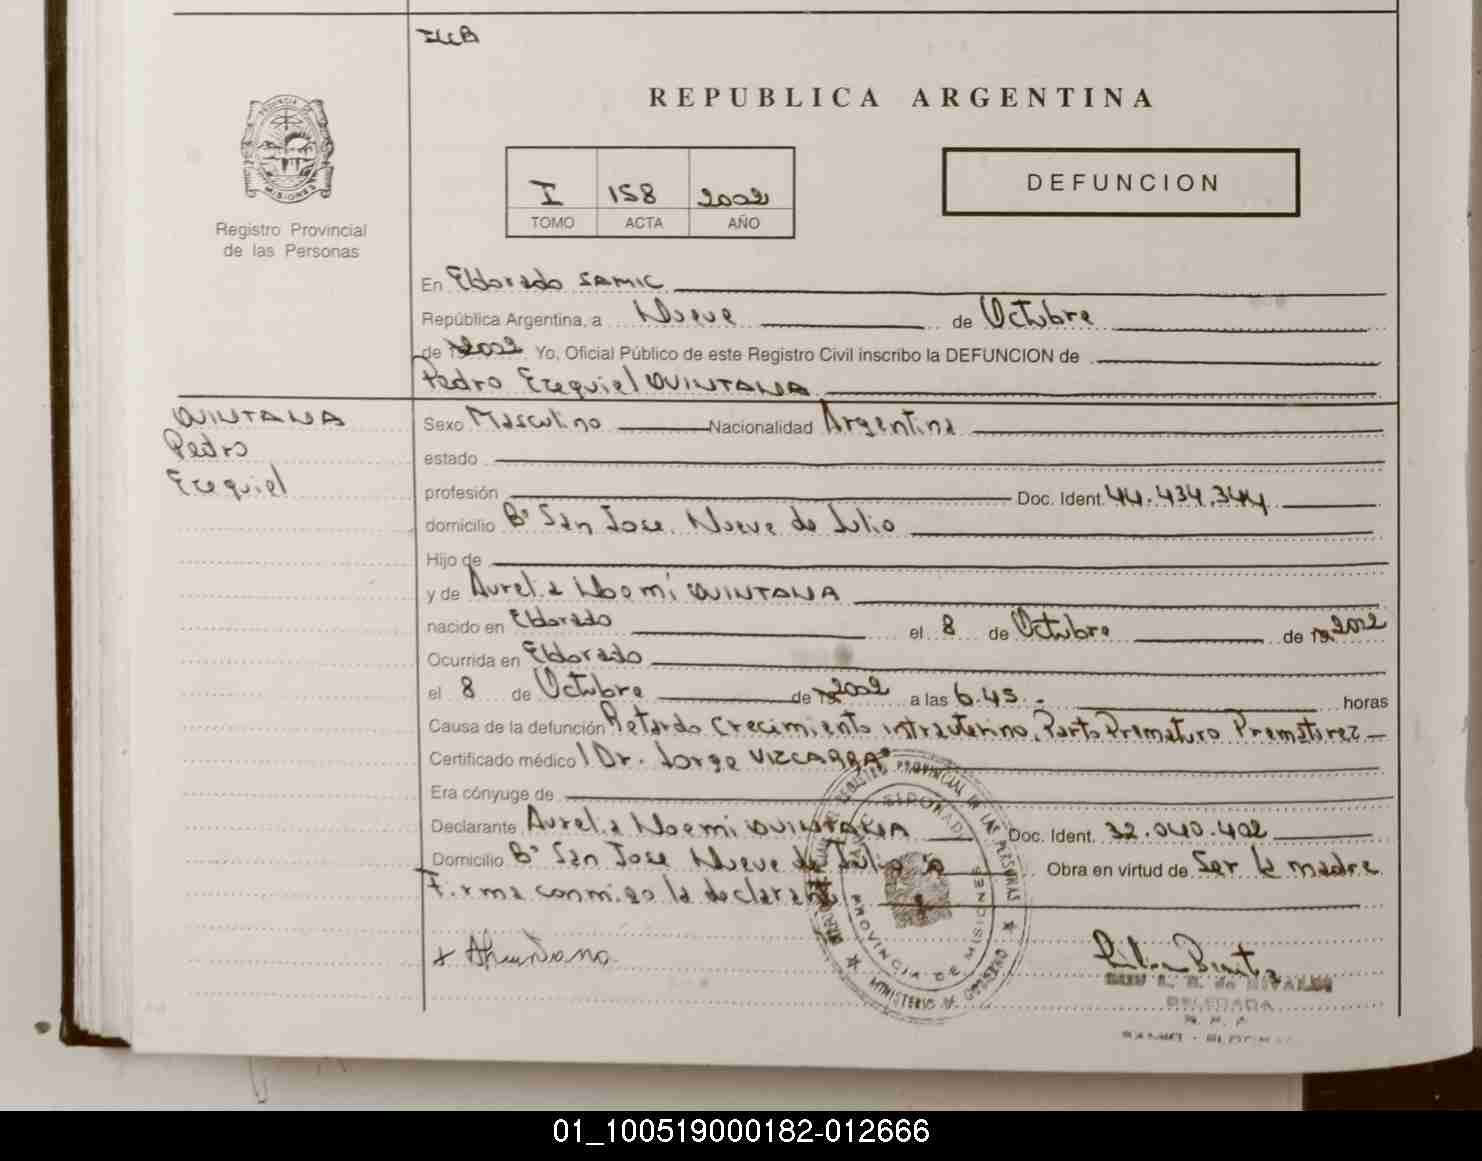 REPUBLICA ARGENTINA
PROVINCIA DE
MISIONES
Registro Provincial
de las Personas
I 158 2002
TOMO ACTA AÑO
DEFUNCION
En Eldorado SAMIC
República Argentina, a Nueve de Octubre
de 2002 Yo, Oficial Público de este Registro Civil inscribo la DEFUNCION de
Pedro Ezequiel QUINTANA
QUINTANA
Pedro
Ezequiel
Sexo Masculino Nacionalidad Argentina
estado
profesión Doc. Ident. 44.434.344
domicilio Bº San Jose. Nueve de Julio
Hijo de
y de Aurelia Noemi QUINTANA
nacido en Eldorado el 8 de Octubre de 2002
Ocurrida en Eldorado
el 8 de Octubre de 2002 a las 6.45.- horas
Causa de la defunción Retardo Crecimiento intrauterino. Parto Prematuro Prematurez-
Certificado médico Dr. Jorge VIZCARRA
Era cónyuge de
Declarante Aurelia Noemi QUINTANA Doc. Ident. 32.040.402
Domicilio Bº San Jose Nueve de Julio Obra en virtud de Ser la madre
Firma conmigo la declarante
REGISTRO PROVINCIAL DE LAS PERSONAS
PROVINCIA DE MISIONES
MINISTERIO DE GOBIERNO
DELEGADA
01_100519000182-012666